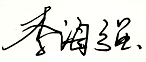 李海强